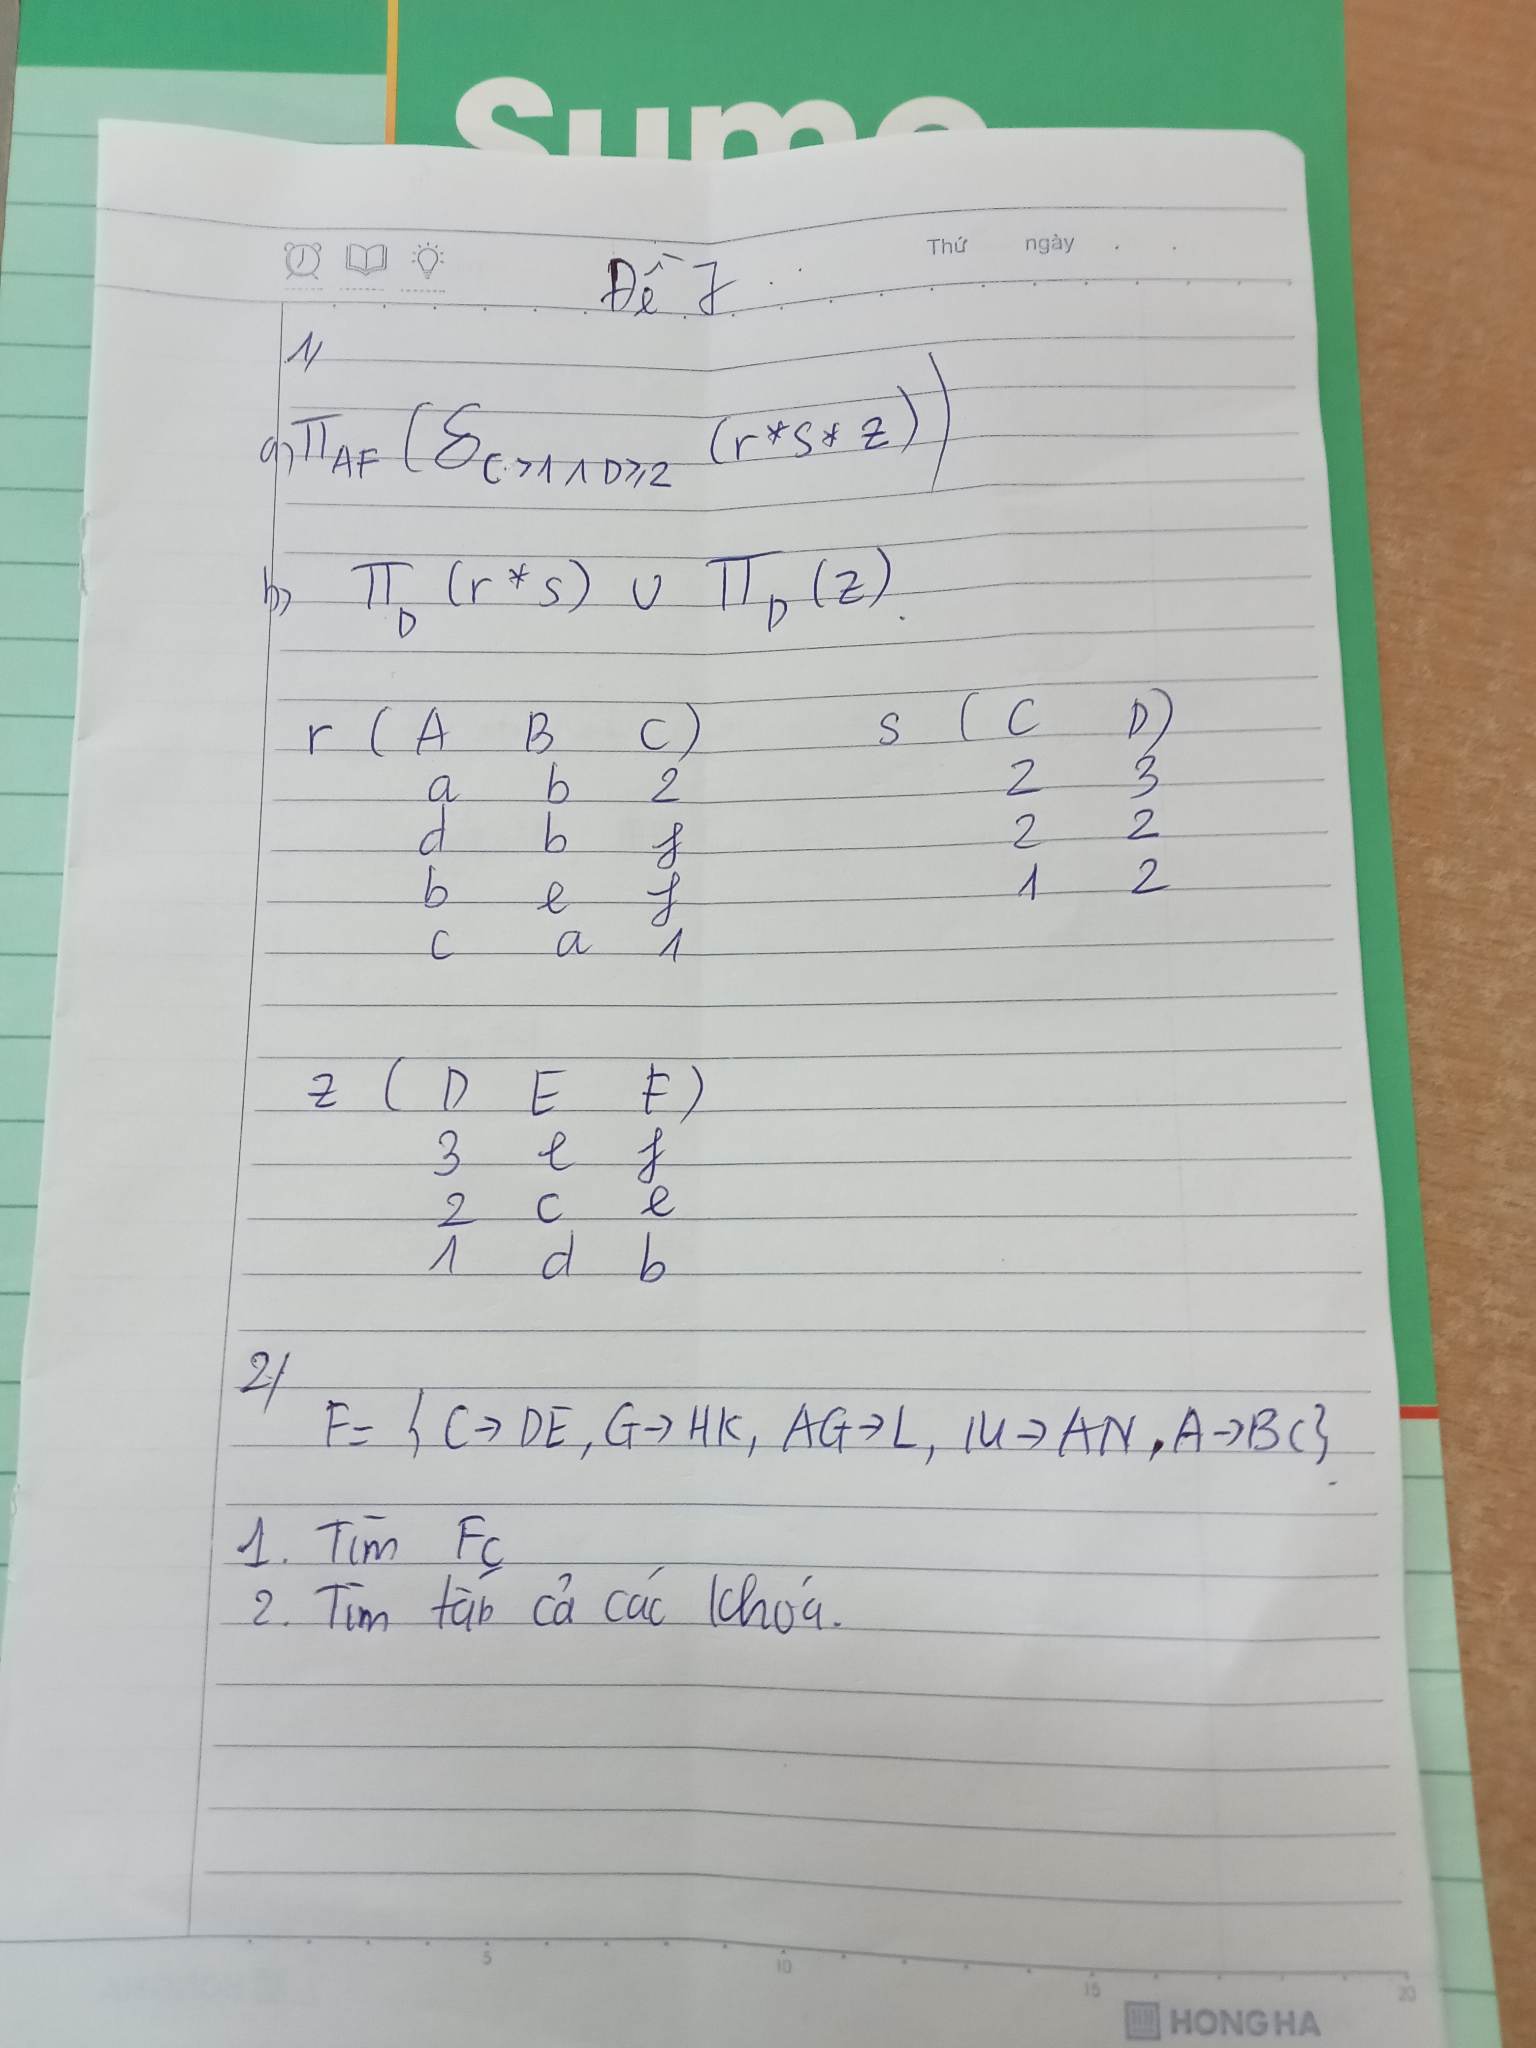 Sumo
Thứ ngày . .
Đề 7
1/
a, π AF (δ C>1 ∧ D≥2 (r*s*z))
b, π D (r*s) ∪ π D (z).
r ( A B C) s ( C D)
a b 2 2 3
d b f 2 2
b e f 1 2
c a 1
z ( D E F)
3 e f
2 c e
1 d b
2/
F= { C→DE, G→HK, AG→L, IU→AN, A→BC}
1. Tìm Fc
2. Tìm tất cả các khóa.
5 10 15 20
HONG HA